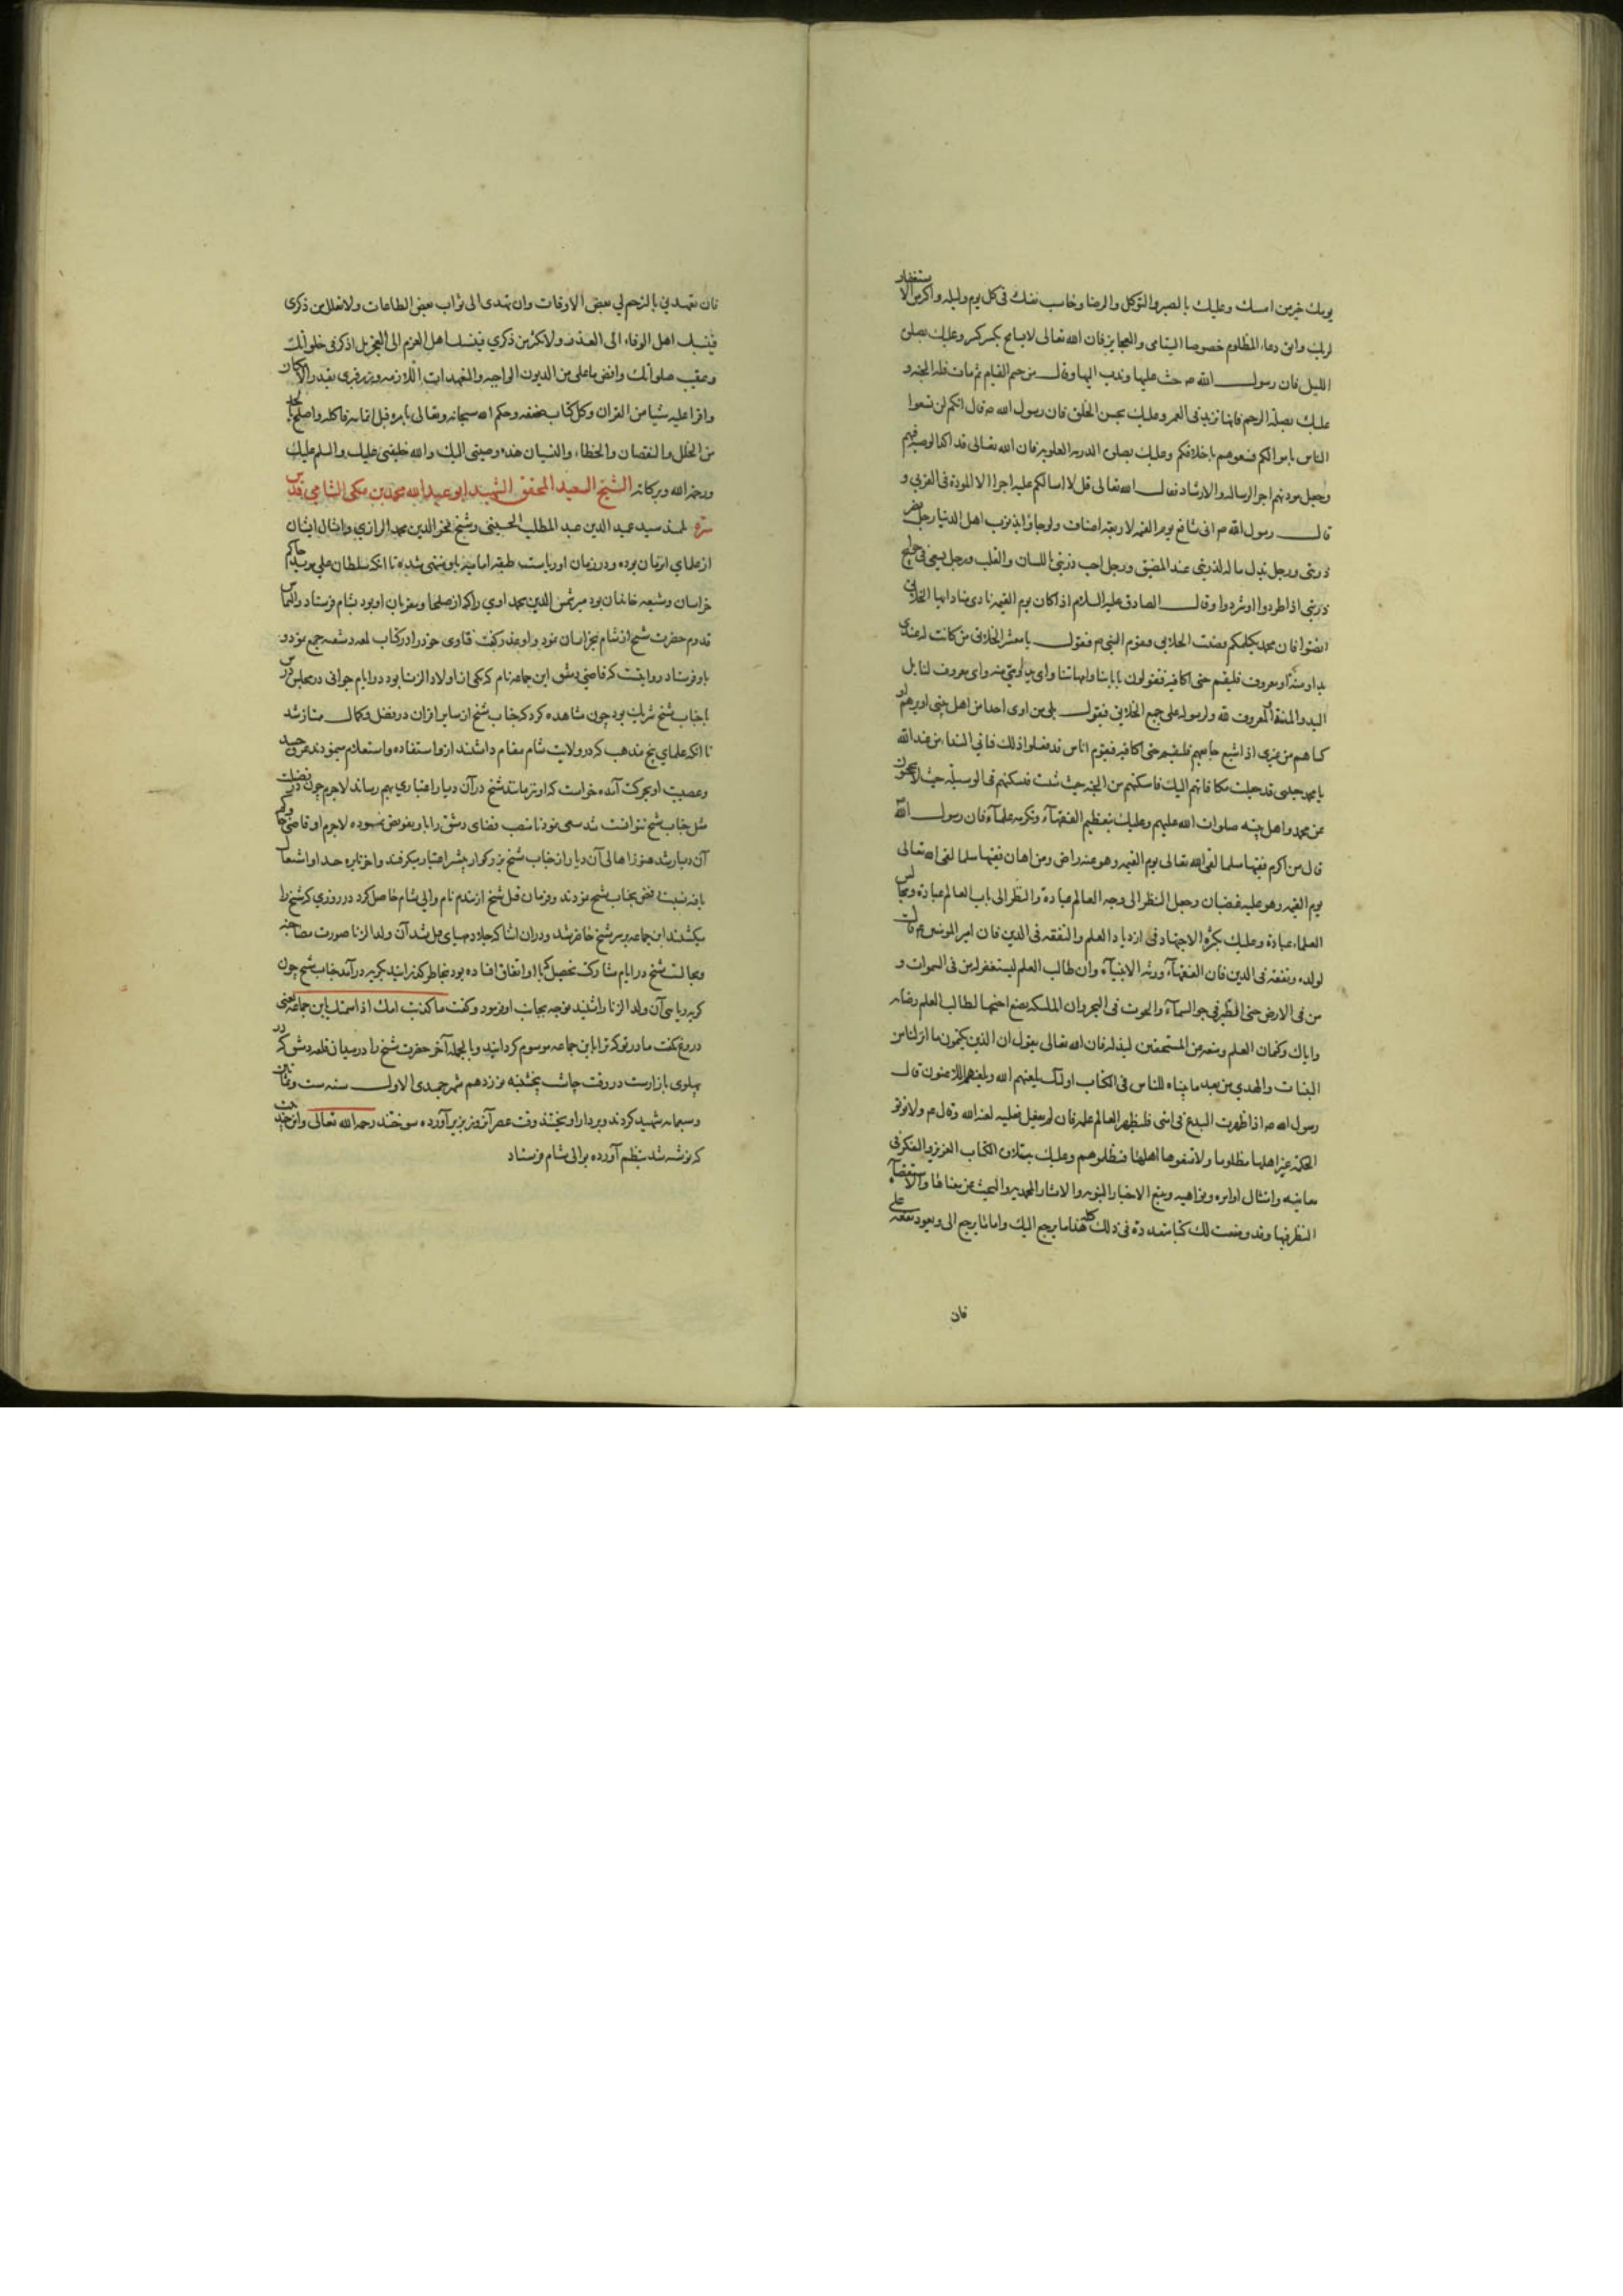 يومك خير من امسك وعليك بالصبر والتوكل والرضا وحاسب نفسك فى كل يوم وليله واكثر من الاستغفار
لربك واتق دعاء المظلوم خصوصا اليتامى والعجايز فان الله تعالى لا يسامح بكسر كسير وعليك بصلوة
الليل فان رسول الله ص حث عليها وندب اليها وقال من ختم له بقيام الليل ثم مات فله الجنه و
عليك بصلة الرحم فانها تزيد فى العمر وعليك بحسن الخلق فان رسول الله ص قال انكم لن تسعوا
الناس باموالكم فسعوهم باخلاقكم وعليك بصلة الذرية العلويه فان الله تعالى قد اكد الوصية فيهم
وجعل مودتهم اجر الرساله والارشاد فقال الله تعالى قل لا اسالكم عليه اجرا الا المودة فى القربى و
قال رسول الله ص انى شافع يوم القيمه لاربعه اصناف ولو جاؤا بذنوب اهل الدنيا رجل نصر
ذريتى ورجل بذل ماله لذريتى عند المضيق ورجل احب ذريتى باللسان والقلب ورجل سعى فى حوايج
ذريتى اذا طردوا او شردوا وقال الصادق عليه السلام اذا كان يوم القيمه نادى مناد ايها الخلايق
انصتوا فان محمدا يكلمكم فينصت الخلايق فيقوم النبى ص فيقول يا معشر الخلايق من كانت له عندى
يد او منة او معروف فليقم حتى اكافيه فيقولون بابائنا وامهاتنا واى يد واى منه واى معروف لنا بل
اليد والمنة والمعروف لله ولرسوله على جميع الخلايق فيقول بلى من اوى احدا من اهل بيتى او برهم او
كساهم من عرى او اشبع جايعهم فليقم حتى اكافيه فيقوم اناس قد فعلوا ذلك فياتى النداء من عند الله
يا محمد حبيبى قد جعلت مكافاتهم اليك فاسكنهم من الجنه حيث شئت فيسكنهم فى الوسيلة حيث لا يحجبون
عن محمد واهل بيته صلوات الله عليهم وعليك بتعظيم الفقهآء وتكرمه علمآء فان رسول الله
قال من اكرم فقيها مسلما لقى الله تعالى يوم القيمه وهو عنه راض ومن اهان فقيها مسلما لقى الله تعالى
يوم القيمه وهو عليه غضبان وجعل النظر الى وجه العالم عبادة والنظر الى باب العالم عبادة ومجالس
العلماء عبادة وعليك بكثرة الاجتهاد فى ازدياد العلم والتفقه فى الدين فان امير المومنين ع قال
لولده وتفقه فى الدين فان الفقهآء ورثه الانبيآء وان طالب العلم ليستغفر له من فى السموات و
من فى الارض حتى الطير فى جو السمآء والحوت فى البحر وان الملئكه لتضع اجنحتها لطالب العلم رضا به
واياك وكتمان العلم ومنعه من المستحقين لبذله فان الله تعالى يقول ان الذين يكتمون ما انزلنا من
البينات والهدى من بعد ما بيناه للناس فى الكتاب اولئك يلعنهم الله ويلعنهم اللاعنون قال
رسول الله ص اذا ظهرت البدع فى امتى فليظهر العالم علمه فان لم يفعل فعليه لعنه الله وقال ع ولا توتوا
الحكمة غير اهلها فتظلموها ولا تمنعوها اهلها فتظلموهم وعليك بتلاوة الكتاب العزيز والفكر فى
معانيه وامتثال اوامره ونواهيه وتتبع الاخبار النبويه والاثار المحمديه والبحث عن معانيها والاستقصآء
النظر فيها وقد وضعت لك كتبا متعددة فى ذلك كله هذا ما يرجع اليك واما ما يرجع الى ويعود نفعه على
فان
فان تتعهدنى بالترحم فى بعض الاوقات وان تهدى الى ثواب بعض الطاعات ولا تقلل من ذكرى
فينسبك اهل الوفاء الى الغدر ولا تكثر من ذكرى فينسبك اهل العزم الى العجز بل اذكرنى فى خلواتك
وعقيب صلواتك واقض ما على من الديون الواجبه والتعهدات اللازمه وزر قبرى بقدر الامكان
واقرا عليه شيئا من القران وكل كتاب صنفته وحكم الله سبحانه وتعالى بامره قبل اتمامه فاكمله واصلح ما تجد
من الخلل والنقصان والخطاء والنسيان هذه وصيتى اليك والله خليفتى عليك والسلم عليك
ورحمة الله وبركاته الشيخ السعيد المحقق الشهيد ابو عبد الله محمد بن مكى الشامى قدس
سره تلميذ سيد عميد الدين عبد المطلب الحسينى وشيخ فخر الدين محمد الرازى وامثال ايشان
از علماى ان زمان بوده و در زمان او رياست طبقه اماميه باو منتهى شده تا انكه سلطان على مويد حاكم
خراسان وشيعه خاندان بود مير شمس الدين محمد اوى را كه از صلحا ومقربان او بود بشام فرستاد والتماس
قدوم حضرت شيخ از شام بخراسان نمود واو عذر گفت فتاوى خود را در كتاب لمعه دمشقيه جمع نمود و
باو فرستاد وروايتست كه قاضى دمشق ابن جماعه نام كه يكى از اولاد الزنا بود در ايام جوانى در مجلس درس
با جناب شيخ شريك بود چون مشاهده كرد كه جناب شيخ از ساير اقران در فضل وكمال ممتاز شد
تا انكه علماى پنج مذهب كه در ولايت شام مقام داشتند ازو استفاده واستعلام مينمودند عرق حسد
وعصبيت او بحركت آمده خواست كه او نيز مانند شيخ در آن ديار اعتبارى بهم رساند لاجرم چون در فضيلت
مثل جناب شيخ نتوانست شد سعى نمود تا منصب قضاى دمشق را باو تفويض نمودند لاجرم او قاضى وحاكم
آن ديار شد هنوز اهالى آن ديار از جناب شيخ بزرگوار بيشتر اعتبار ميگرفتند واخر نايره حسد او اشتعال
يافته نسبت رفض بجناب شيخ نمودند وفرمان قتل شيخ از بيدمر نام والى شام حاصل كرد در روزى كه شيخ را
ميكشتند ابن جماعه بر سر شيخ حاضر شد ودران اثنا كه جلاد مهياى قتل شد آن ولد الزنا صورت مصاحبه
ومجالست شيخ در ايام مشاركت تحصيل كه با او اتفاق افتاده بود بخاطر گذرانيد بگريه درآمد جناب شيخ چون
گريه ريائى آن ولد الزنا را شنيد متوجه بجانب او فرمود وگفت ما كذبت امك اذ اسمتك بابن جماعة يعنى
دروغ نگفت مادر تو كه ترا بابن جماعه موسوم گردانيد وبالجمله آخر حضرت شيخ را در ميدان قلعه دمشق كه در
پهلوى بازارست در وقت چاشت پنجشنبه نوزدهم شهر جمدى الاول سنه ست وثمانين
وسبعمايه شهيد كردند وبر دار اويختند وقت عصر آنروز بزير آورده سوختند رحمه الله تعالى واين چند بيت
كه نوشته شد بنظم آورده بوالى شام فرستاد